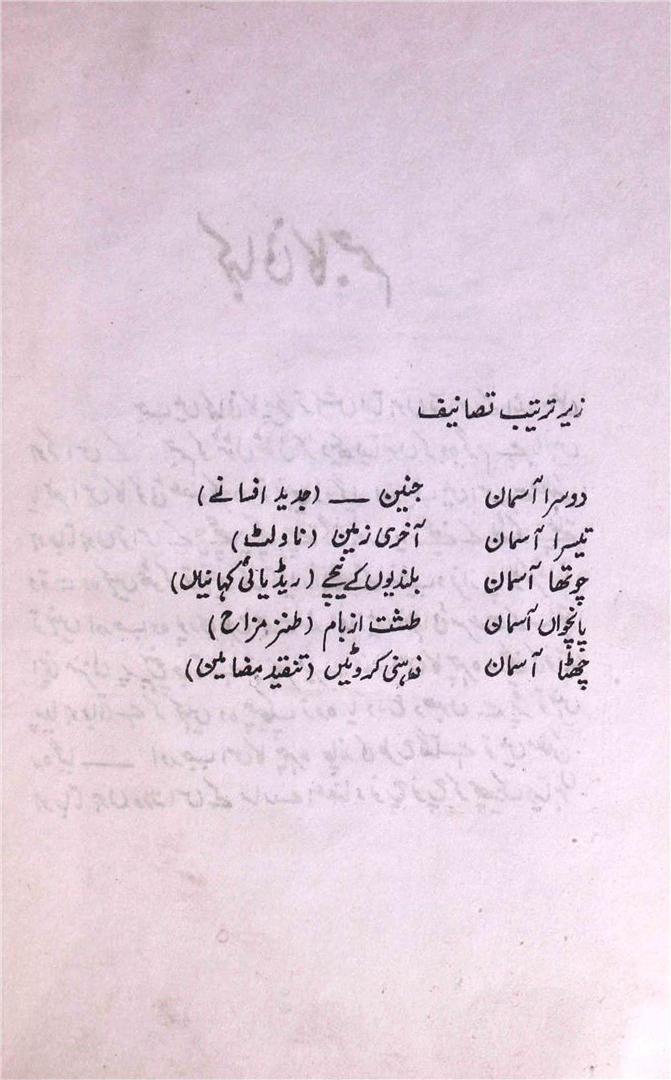 زیر ترتیب تصانیف
دوسرا آسمان جنین — (جدید افسانے)
تیسرا آسمان آخری زمین (ناولٹ)
چوتھا آسمان بلندیوں کے نیچے (ریڈیائی کہانیاں)
پانچواں آسمان طشت از بام (طنز مزاح)
چھٹا آسمان ذہنی کروٹیں (تنقید مضامین)